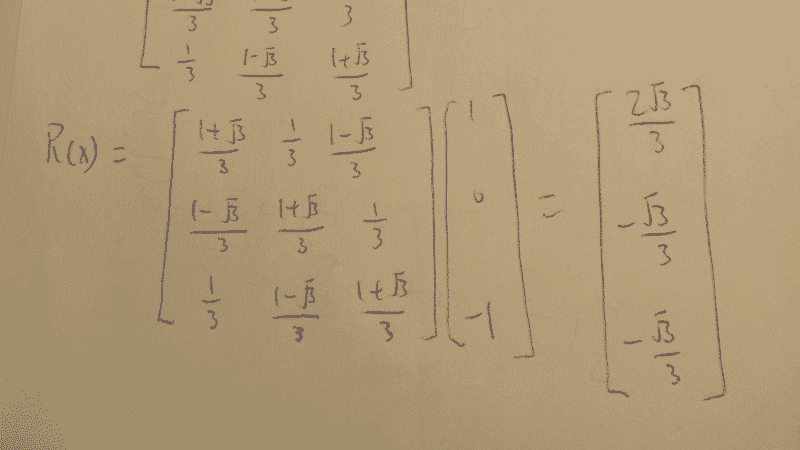 3 3 3
1/3 (1-√3)/3 (1+√3)/3
R(x) = [ (1+√3)/3 1/3 (1-√3)/3 ] [ 1 ] = [ 2√3/3 ]
[ (1-√3)/3 (1+√3)/3 1/3 ] [ 0 ] [ -√3/3 ]
[ 1/3 (1-√3)/3 (1+√3)/3 ] [ -1 ] [ -√3/3 ]